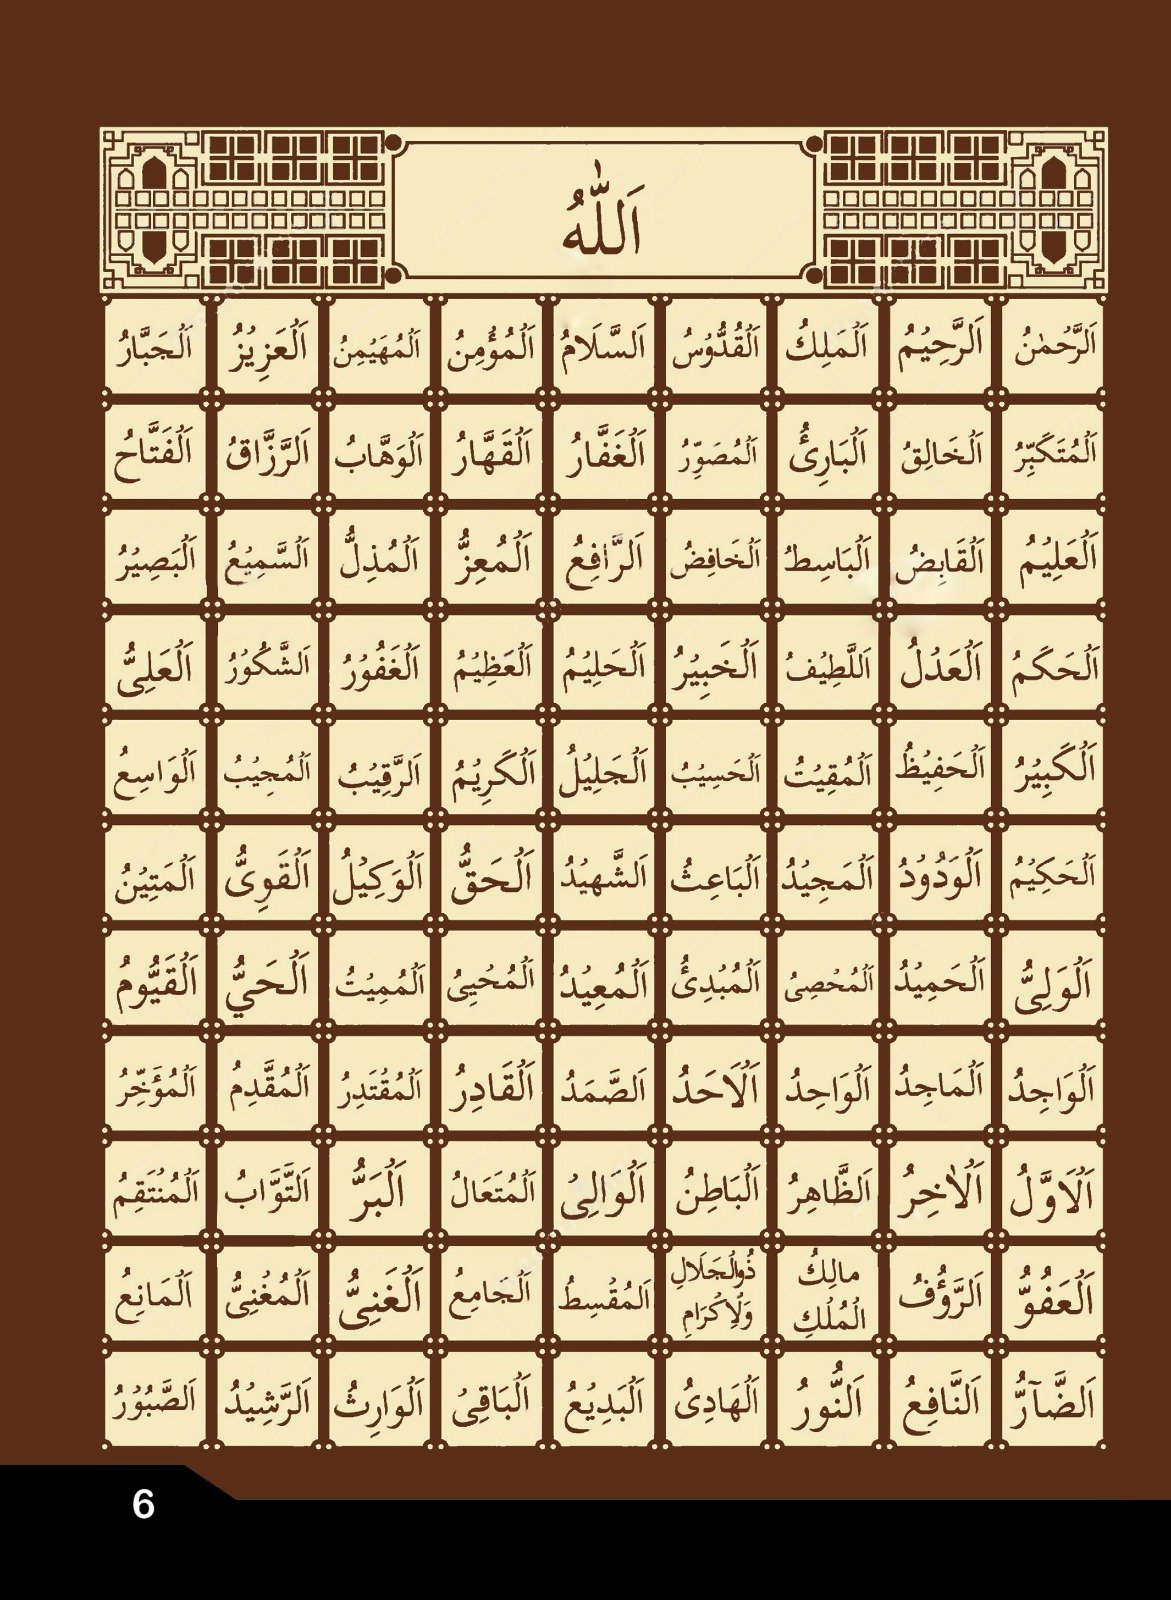 اَللّٰهُ
اَلرَّحْمٰنُ اَلرَّحِيْمُ اَلْمَلِكُ اَلْقُدُّوْسُ اَلسَّلَامُ اَلْمُؤْمِنُ اَلْمُهَيْمِنُ اَلْعَزِيْزُ اَلْجَبَّارُ
اَلْمُتَكَبِّرُ اَلْخَالِقُ اَلْبَارِئُ اَلْمُصَوِّرُ اَلْغَفَّارُ اَلْقَهَّارُ اَلْوَهَّابُ اَلرَّزَّاقُ اَلْفَتَّاحُ
اَلْعَلِيْمُ اَلْقَابِضُ اَلْبَاسِطُ اَلْخَافِضُ اَلرَّافِعُ اَلْمُعِزُّ اَلْمُذِلُّ اَلسَّمِيْعُ اَلْبَصِيْرُ
اَلْحَكَمُ اَلْعَدْلُ اَللَّطِيْفُ اَلْخَبِيْرُ اَلْحَلِيْمُ اَلْعَظِيْمُ اَلْغَفُوْرُ اَلشَّكُوْرُ اَلْعَلِىُّ
اَلْكَبِيْرُ اَلْحَفِيْظُ اَلْمُقِيْتُ اَلْحَسِيْبُ اَلْجَلِيْلُ اَلْكَرِيْمُ اَلرَّقِيْبُ اَلْمُجِيْبُ اَلْوَاسِعُ
اَلْحَكِيْمُ اَلْوَدُوْدُ اَلْمَجِيْدُ اَلْبَاعِثُ اَلشَّهِيْدُ اَلْحَقُّ اَلْوَكِيْلُ اَلْقَوِىُّ اَلْمَتِيْنُ
اَلْوَلِىُّ اَلْحَمِيْدُ اَلْمُحْصِىُ اَلْمُبْدِئُ اَلْمُعِيْدُ اَلْمُحْيِىُ اَلْمُمِيْتُ اَلْحَيُّ اَلْقَيُّوْمُ
اَلْوَاجِدُ اَلْمَاجِدُ اَلْوَاحِدُ اَلْاَحَدُ اَلصَّمَدُ اَلْقَادِرُ اَلْمُقْتَدِرُ اَلْمُقَّدِمُ اَلْمُؤَخِّرُ
اَلْاَوَّلُ اَلْاٰخِرُ اَلظَّاهِرُ اَلْبَاطِنُ اَلْوَالِىُ اَلْمُتَعَالُ اَلْبَرُّ اَلتَّوَّابُ اَلْمُنْتَقِمُ
اَلْعَفُوُّ اَلرَّؤُفُ مالِكُ الْمُلْكِ ذُوالْجَلَالِ وَلْاِكْرَامِ اَلْمُقْسِطُ اَلْجَامِعُ اَلْغَنِىُّ اَلْمُغْنِىُّ اَلْمَانِعُ
اَلضَّآرُّ اَلنَّافِعُ اَلنُّوْرُ اَلْهَادِىُ اَلْبَدِيْعُ اَلْبَاقِىُ اَلْوَارِثُ اَلرَّشِيْدُ اَلصَّبُوْرُ
6